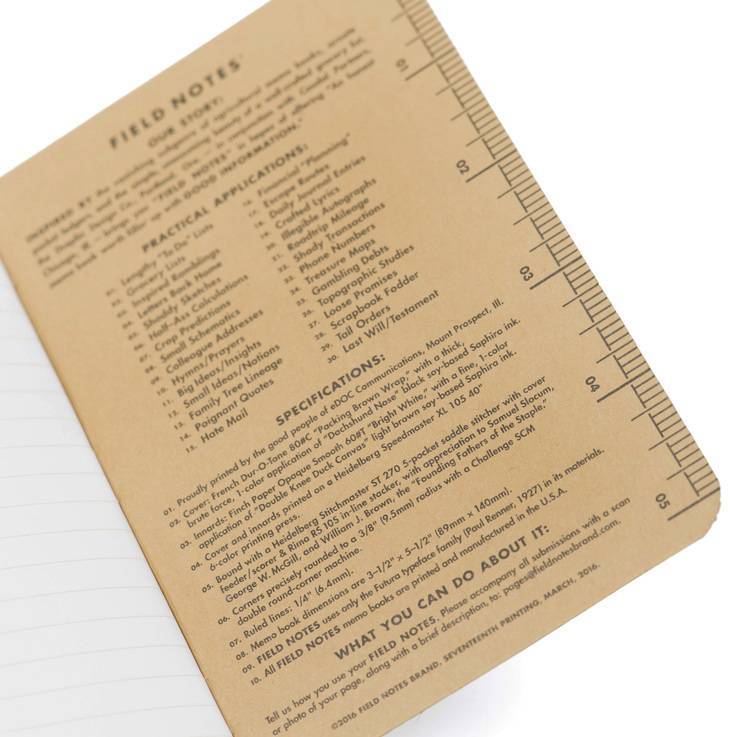 FIELD NOTES
OUR STORY:
INSPIRED BY the vanishing subgenre of agricultural memo books, ornate
pocket ledgers, and the simple, unassuming beauty of a well-crafted grocery list,
the Draplin Design Co., Portland, Ore. — in conjunction with Coudal Partners,
Chicago, Ill. — brings you "FIELD NOTES" in hopes of offering "An honest
memo book worth fillin' up with GOOD INFORMATION."
PRACTICAL APPLICATIONS:
01. Lengthy "To Do" Lists
02. Grocery Lists
03. Inspired Ramblings
04. Letters Back Home
05. Shoddy Sketches
06. Half-Ass Calculations
07. Crop Predictions
08. Small Schematics
09. Colleague Addresses
10. Hymns/Prayers
11. Big Ideas/Insights
12. Small Ideas/Notions
13. Family Tree Lineage
14. Poignant Quotes
15. Hate Mail
16. Financial "Planning"
17. Escape Routes
18. Daily Journal Entries
19. Crafted Lyrics
20. Illegible Autographs
21. Roadtrip Mileage
22. Shady Transactions
23. Phone Numbers
24. Treasure Maps
25. Gambling Debts
26. Topographic Studies
27. Loose Promises
28. Scrapbook Fodder
29. Tall Orders
30. Last Will/Testament
SPECIFICATIONS:
01. Proudly printed by the good people of eDOC Communications, Mount Prospect, Ill.
02. Cover: French Dur-O-Tone 80#C "Packing Brown Wrap," with a thick,
brute force, 1-color application of "Dachshund Nose" black soy-based Saphira ink.
03. Innards: Finch Paper Opaque Smooth 60#T "Bright White," with a fine, 1-color
application of "Double Knee Duck Canvas" light brown soy-based Saphira ink.
04. Cover and innards printed on a Heidelberg Speedmaster XL 105 40"
6-color printing press.
05. Bound with a Heidelberg Stitchmaster ST 270 5-pocket saddle stitcher with cover
feeder/scorer & Rima RS 105 in-line stacker, with appreciation to Samuel Slocum,
George W. McGill, and William J. Brown, the "Founding Fathers of the Staple."
06. Corners precisely rounded to a 3/8" (9.5mm) radius with a Challenge SCM
double round-corner machine.
07. Ruled lines: 1/4" (6.4mm).
08. Memo book dimensions are 3-1/2" × 5-1/2" (89mm × 140mm).
09. FIELD NOTES uses only the Futura typeface family (Paul Renner, 1927) in its materials.
10. All FIELD NOTES memo books are printed and manufactured in the U.S.A.
WHAT YOU CAN DO ABOUT IT:
Tell us how you use your FIELD NOTES. Please accompany all submissions with a scan
or photo of your page, along with a brief description, to: pages@fieldnotesbrand.com.
©2016 FIELD NOTES BRAND, SEVENTEENTH PRINTING, MARCH, 2016.
01
02
03
04
05